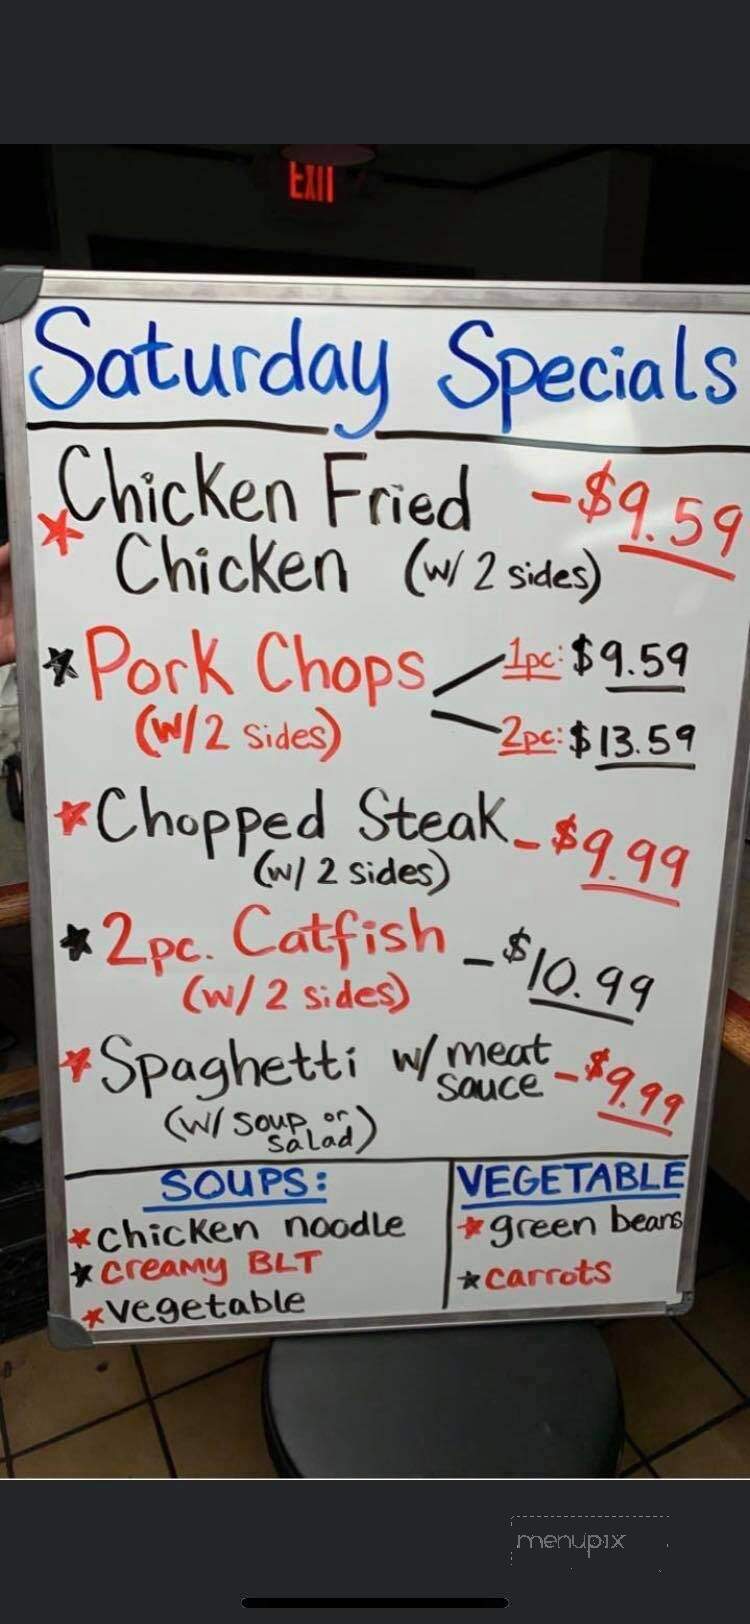 EXIT
Saturday Specials
Chicken Fried - $9.59
Chicken (w/ 2 sides)
Pork Chops 1pc: $9.59
(w/2 sides) 2pc: $13.59
Chopped Steak - $9.99
(w/ 2 sides)
2pc. Catfish - $10.99
(w/ 2 sides)
Spaghetti w/ meat sauce - $9.99
(w/ soup or salad)
SOUPS:
chicken noodle
creamy BLT
vegetable
VEGETABLE
green beans
carrots
menupix